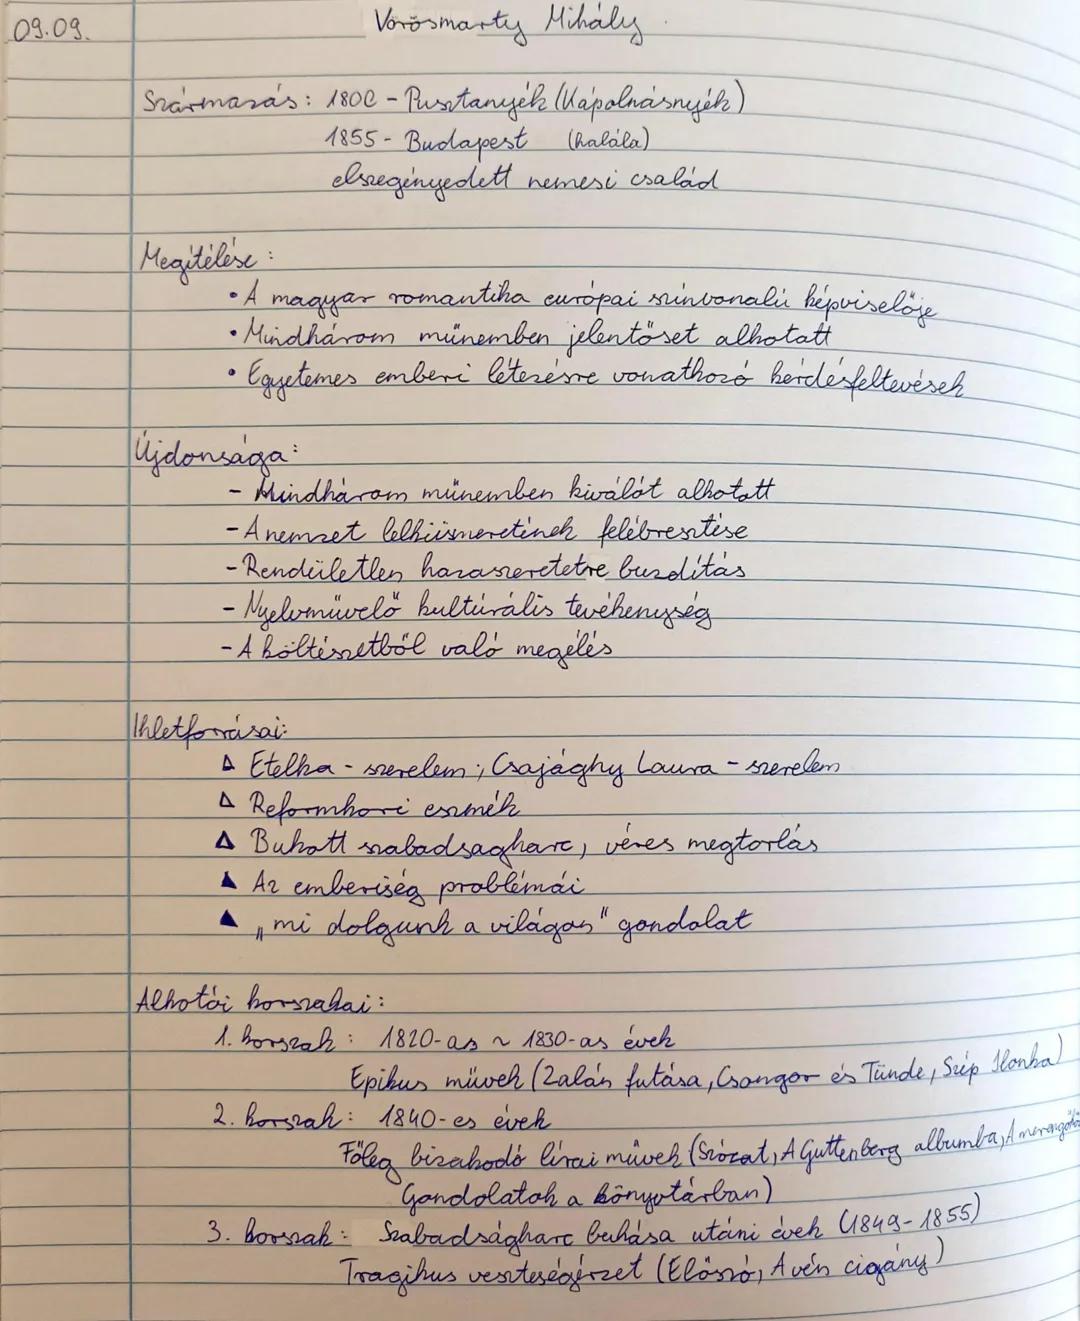 09.09.
Vörösmarty Mihály
Származás: 1800 - Pusztanyék (Kápolnásnyék)
1855 - Budapest (halála)
elszegényedett nemesi család
Megítélése:
• A magyar romantika európai színvonalú képviselője
• Mindhárom műnemben jelentőset alkotatt
• Egyetemes emberi létezésre vonatkozó kérdésfeltevések
Újdonsága:
- Mindhárom műnemben kiválót alkotott
- A nemzet lelkiismeretének felébresztése
- Rendületlen hazaszeretetre buzdítás
- Nyelvművelő kultúrális tevékenység
- A költészetből való megélés
Ihletforrásai:
Δ Etelka - szerelem; Csajághy Laura - szerelem
Δ Reformkori eszmék
Δ Bukott szabadságharc, véres megtorlás
▲ Az emberiség problémái
▲ „mi dolgunk a világon" gondolat
Alkotói korszakai:
1. korszak: 1820-as ~ 1830-as évek
Epikus művek (Zalán futása, Csongor és Tünde, Szép Ilonka)
2. korszak: 1840-es évek
Főleg bizakodó lírai művek (Szózat, A Guttenberg albumba, A merengőhöz
Gondolatok a könyvtárban)
3. korszak: Szabadságharc bukása utáni évek (1849-1855)
Tragikus veszteségérzet (Előszó, A vén cigány)